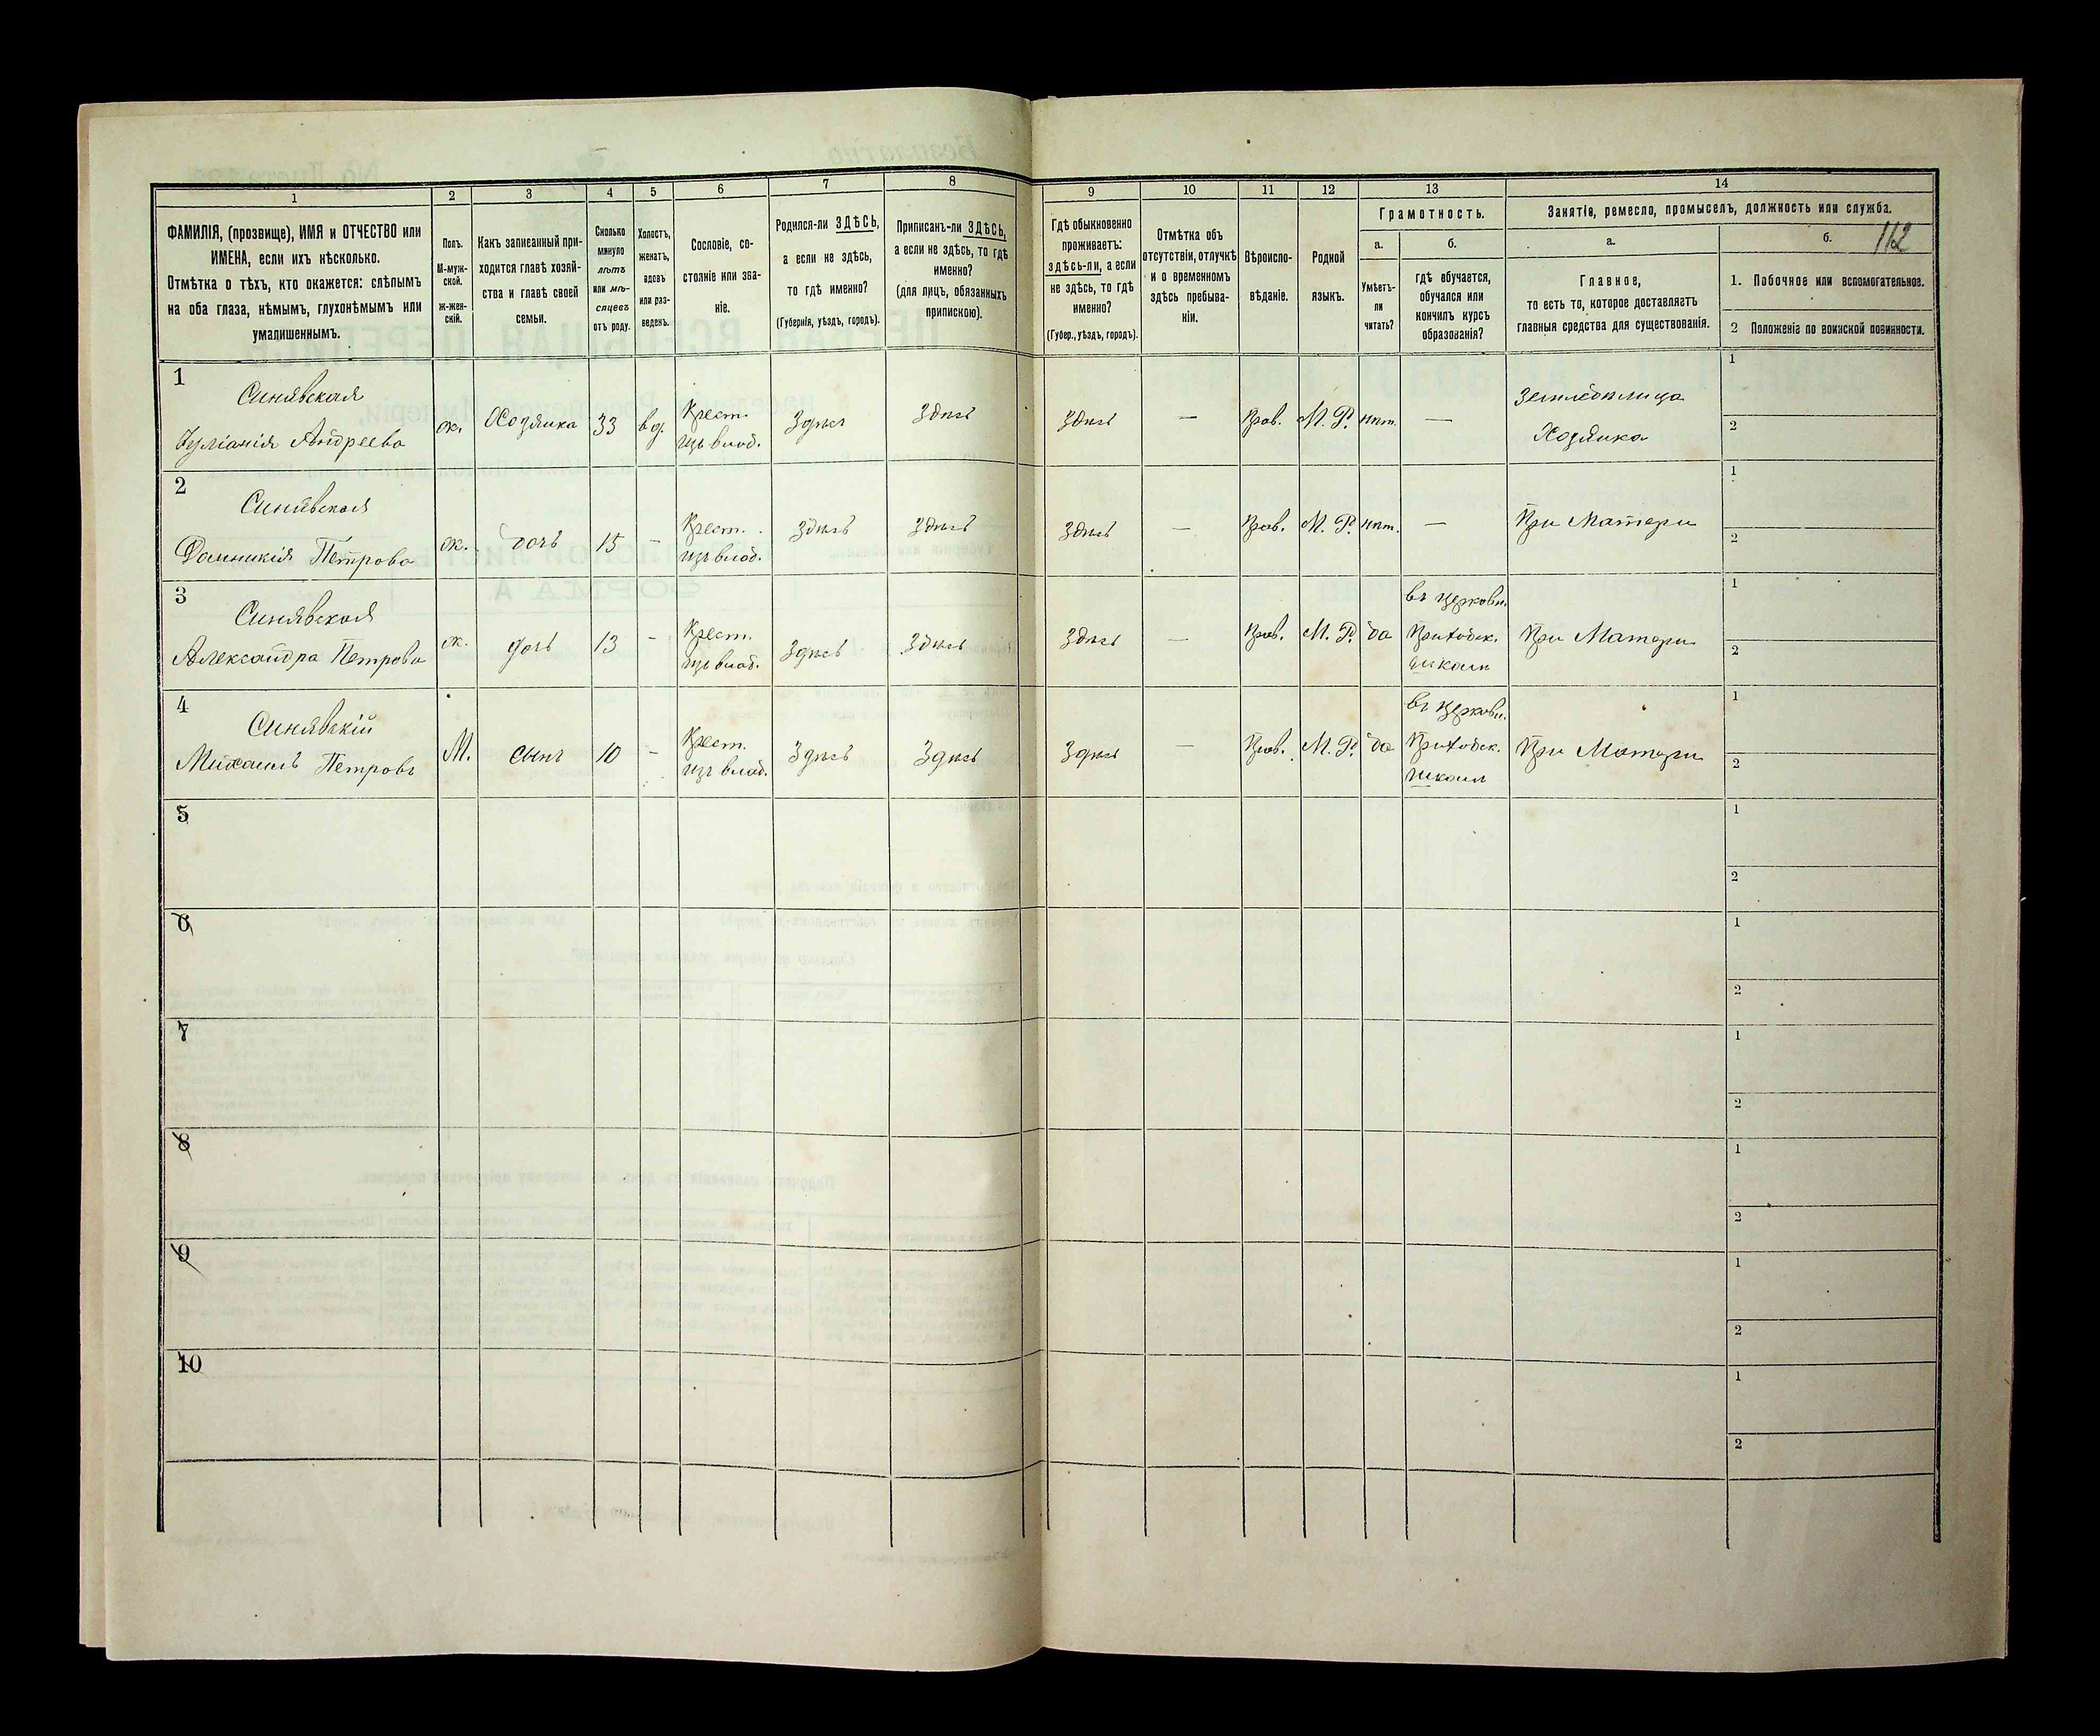 1 2 3 4 5 6 7 8 9 10 11 12 13 14
112
ФАМИЛІЯ, (прозвище), ИМЯ и ОТЧЕСТВО или
ИМЕНА, если ихъ нѣсколько.
Отмѣтка о тѣхъ, кто окажется: слѣпымъ
на оба глаза, нѣмымъ, глухонѣмымъ или
умалишеннымъ.
Полъ.
М-муж-
ской.
ж-жен-
скій.
Какъ записанный при-
ходится главѣ хозяй-
ства и главѣ своей
семьи.
Сколько
минуло
лѣтъ
или мѣ-
сяцевъ
отъ роду.
Холостъ,
женатъ,
вдовъ
или раз-
веденъ.
Сословіе, со-
стояніе или зва-
ніе.
Родился-ли ЗДѢСЬ,
а если не здѣсь,
то гдѣ именно?
(Губернія, уѣздъ, городъ).
Приписанъ-ли ЗДѢСЬ,
а если не здѣсь, то гдѣ
именно?
(для лицъ, обязанныхъ
припискою).
Гдѣ обыкновенно
проживаетъ:
здѣсь-ли, а если
не здѣсь, то гдѣ
именно?
(Губер., уѣздъ, городъ).
Отмѣтка объ
отсутствіи, отлучкѣ
и о временномъ
здѣсь пребыва-
ніи.
Вѣроиспо-
вѣданіе.
Родной
языкъ.
Грамотность.
а.
Умѣетъ-
ли
читать?
б.
гдѣ обучается,
обучался или
кончилъ курсъ
образованія?
Занятіе, ремесло, промыселъ, должность или служба.
а.
Главное,
то есть то, которое доставляетъ
главныя средства для существованія.
б.
1. Побочное или вспомогательное.
2 Положеніе по воинской повинности.
1
Синявская
Іуліанія Андреева
ж. Хозяйка 33 вд.
Крест.
изъ влад.
Здѣсь Здѣсь Здѣсь — Прав. М. Р. нѣт. —
Земледѣлица
Хозяйка
1
2
2
Синявская
Петрова
ж. дочь 15 -
Крест.
изъ влад.
Здѣсь Здѣсь Здѣсь — Прав. М. Р. нѣт. — При Матери
1
2
3
Синявская
Александра Петрова
ж. дочь 13 -
Крест.
изъ влад.
Здѣсь Здѣсь Здѣсь — Прав. М. Р. да
въ церковн.
Приходск.
школѣ
При Матери
1
2
4
Синявскій
Михаилъ Петровъ
М. сынъ 10 -
Крест.
изъ влад.
Здѣсь Здѣсь Здѣсь — Прав. М. Р. да
въ церковн.
Приходск.
школѣ
При Матери
1
2
5
1
2
6
1
2
7
1
2
8
1
2
9
1
2
10
1
2